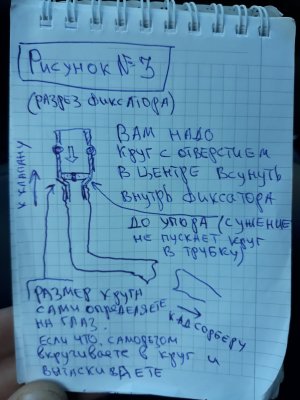 Рисунок №3
(разрез фиксатора)
Вам надо
круг с отверстием
в центре всунуть
внутрь фиксатора
до упора (сужение
не пускает круг
в трубку)
к клапану
к адсорберу
Размер круга
сами определяете
на глаз.
Если что, саморезом
вкручиваете в круг и
вытаскиваете